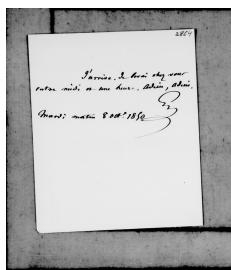 2864
J'arrive. Je serai chez vous
entre midi et une heure. Adieu, adieu.
Mardi matin 8 oct. 1850